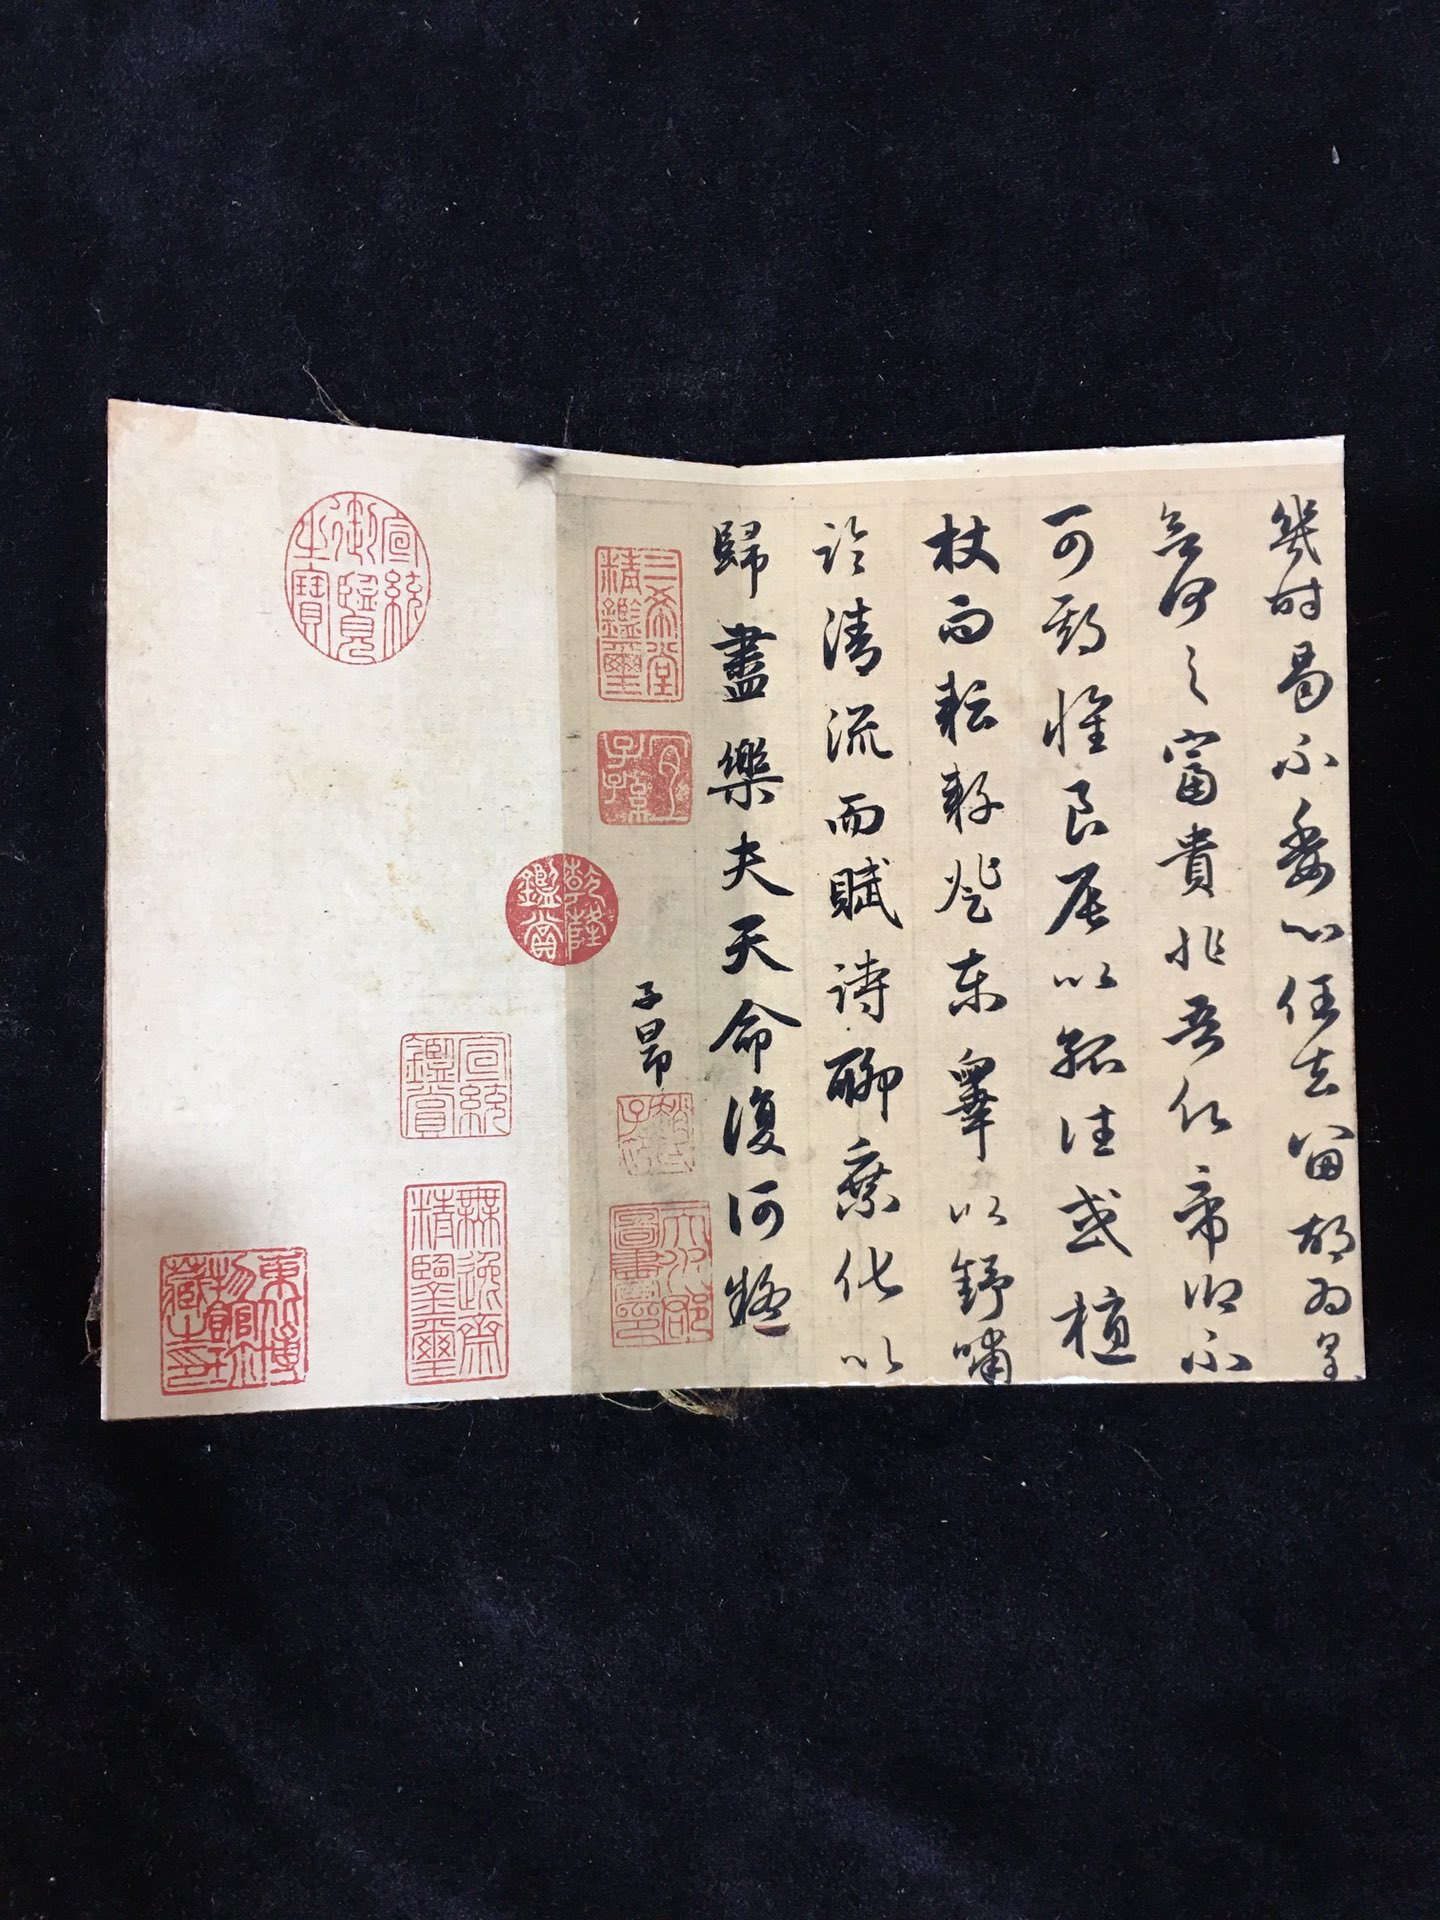 幾时曷不委心任去留胡为皇
兮何之富貴非吾仁帝鄉不
可期懷良辰以孤往或植
杖而耘耔登东皋以舒啸
臨清流而賦诗聊乘化以
歸盡樂夫天命復何疑
子昂
三希堂精鑑璽
宜子孫
乾隆鑑賞
趙氏子昂
天水郡圖書印
宣統御覽之寶
宣統鑑賞
無逸齋精鑒璽
東北博物館珍藏之印